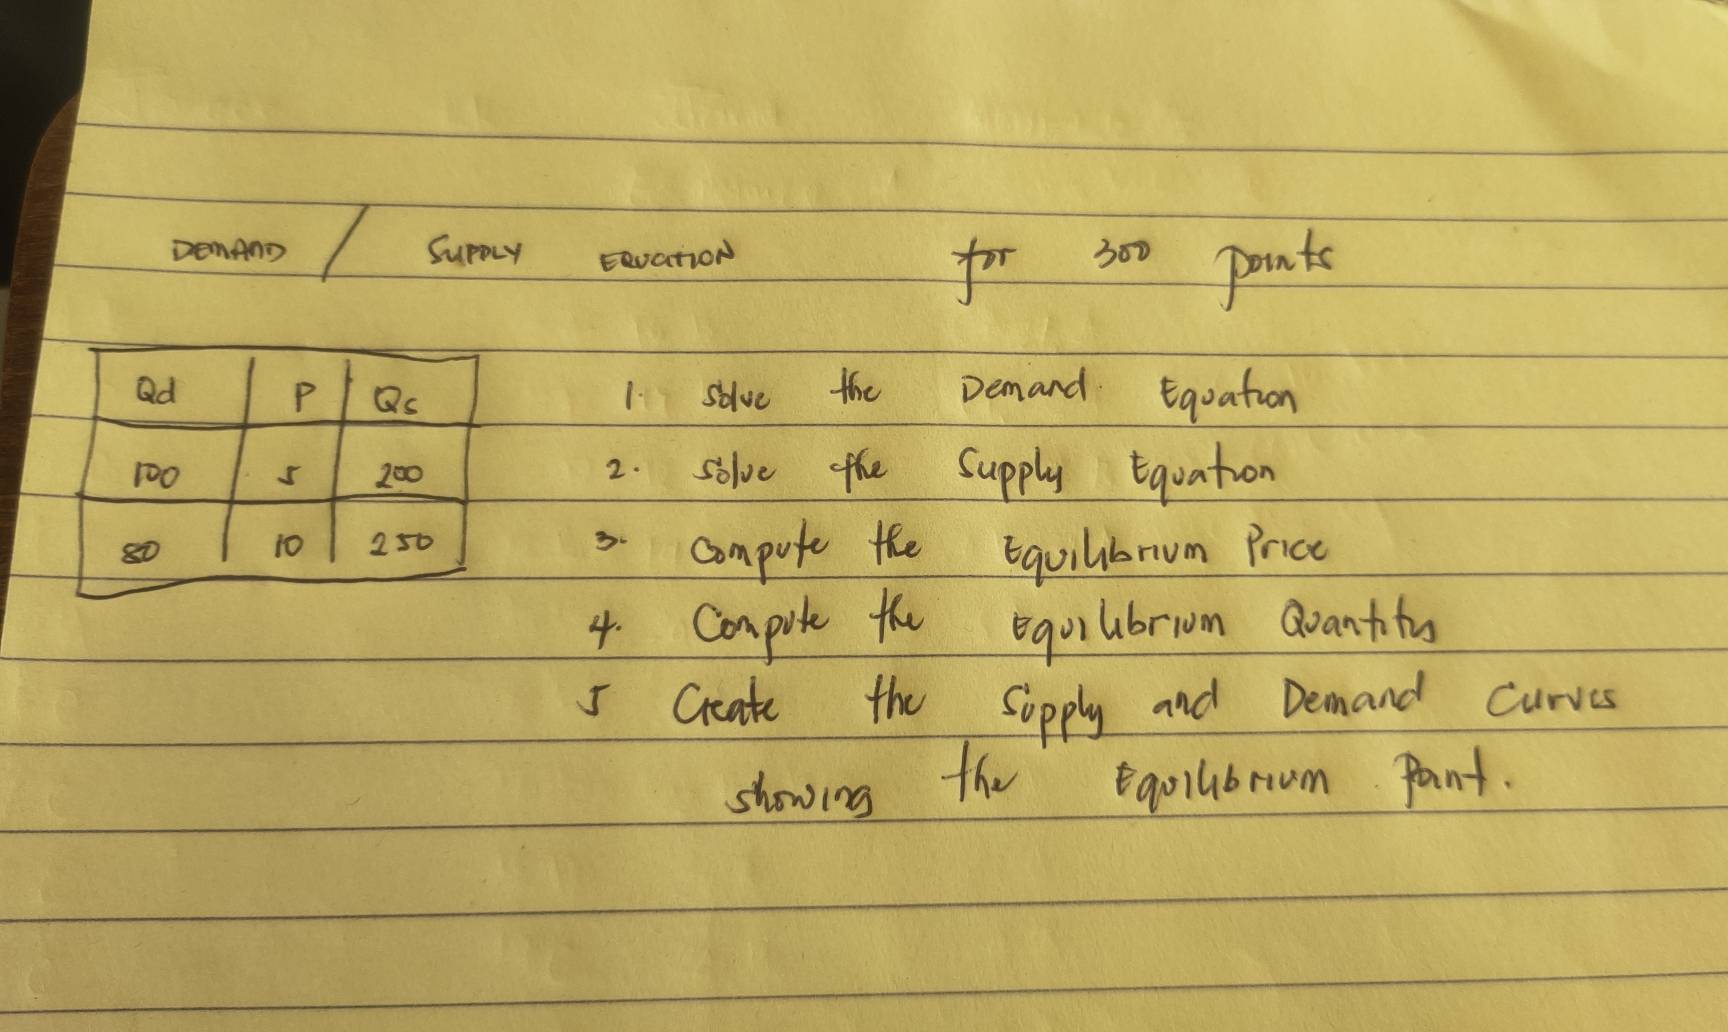 DEMAND / SUPPLY EQUATION for 300 points
Qd P Qs
100 5 200
80 10 250
1. Solve the Demand Equation
2. Solve the Supply Equation
3. Compute the Equilibrium Price
4. Compute the Equilibrium Quantity
5 Create the Supply and Demand Curves
showing the Equilibrium Point.